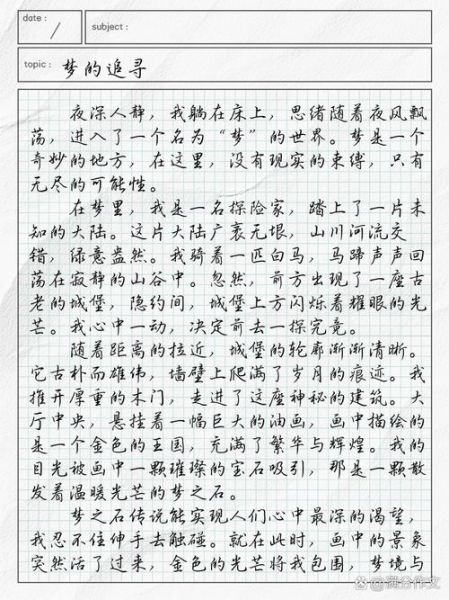 date :
subject :
topic : 梦的追寻
夜深人静，我躺在床上，思绪随着夜风飘
荡，进入了一个名为“梦”的世界。梦是一个
奇妙的地方，在这里，没有现实的束缚，只有
无尽的可能性。
在梦里，我是一名探险家，踏上了一片未
知的大陆。这片大陆广袤无垠，山川河流交
错，绿意盎然。我骑着一匹白马，马蹄声声回
荡在寂静的山谷中。忽然，前方出现了一座古
老的城堡，隐约间，城堡上方闪烁着耀眼的光
芒。我心中一动，决定前去一探究竟。
随着距离的拉近，城堡的轮廓渐渐清晰。
它古朴而雄伟，墙壁上爬满了岁月的痕迹。我
推开厚重的木门，走进了这座神秘的建筑。大
厅中央，悬挂着一幅巨大的油画，画中描绘的
是一个金色的王国，充满了繁华与辉煌。我的
目光被画中一颗璀璨的宝石吸引，那是一颗散
发着温暖光芒的梦之石。
梦之石传说能实现人们心中最深的渴望，
我忍不住伸手去触碰。就在此时，画中的景象
突然活了过来，金色的光芒将我包围，梦境与
@满分作文